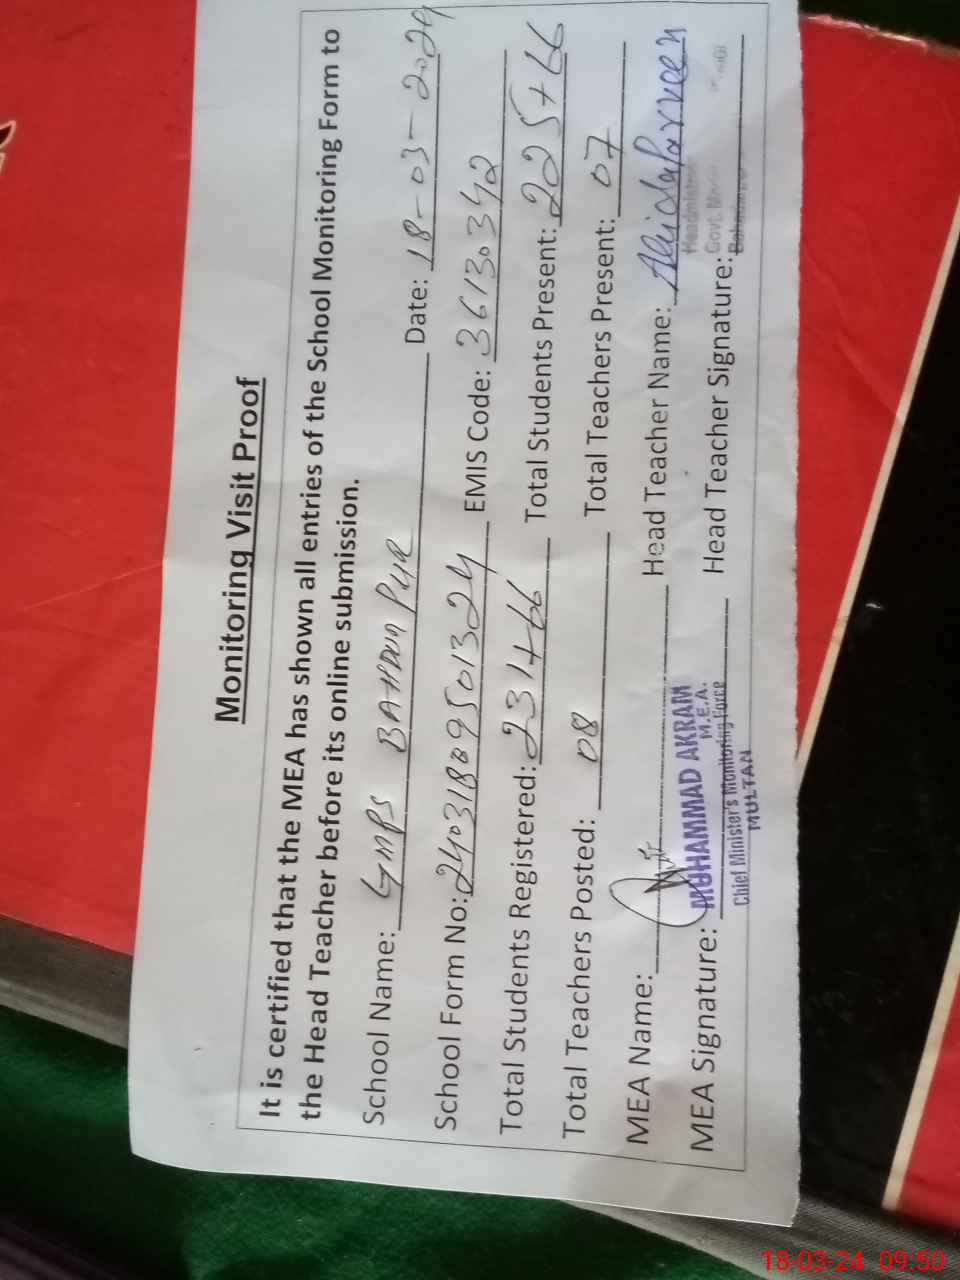 Monitoring Visit Proof
It is certified that the MEA has shown all entries of the School Monitoring Form to
the Head Teacher before its online submission.
School Name: GMPS BAHADUR PUR Date: 18-03-2024
School Form No: 24031889501324 EMIS Code: 36130342
Total Students Registered: 231+66 Total Students Present: 225+66
Total Teachers Posted: 08 Total Teachers Present: 07
MEA Name: Head Teacher Name: Parveen
MEA Signature: Head Teacher Signature:
MUHAMMAD AKRAM
M.E.A.
Chief Minister's Monitoring Force
MULTAN
Govt.
18-03-24 09:50